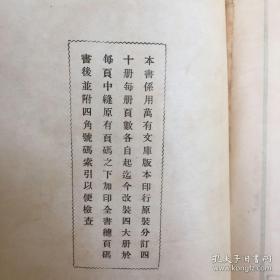 本書係用萬有文庫版本印行原裝分訂四
十册每册頁數各自起迄今改裝四大册於
每頁中縫原有頁碼之下加印全書總頁碼
書後並附四角號碼索引以便檢查
孔夫子旧书网